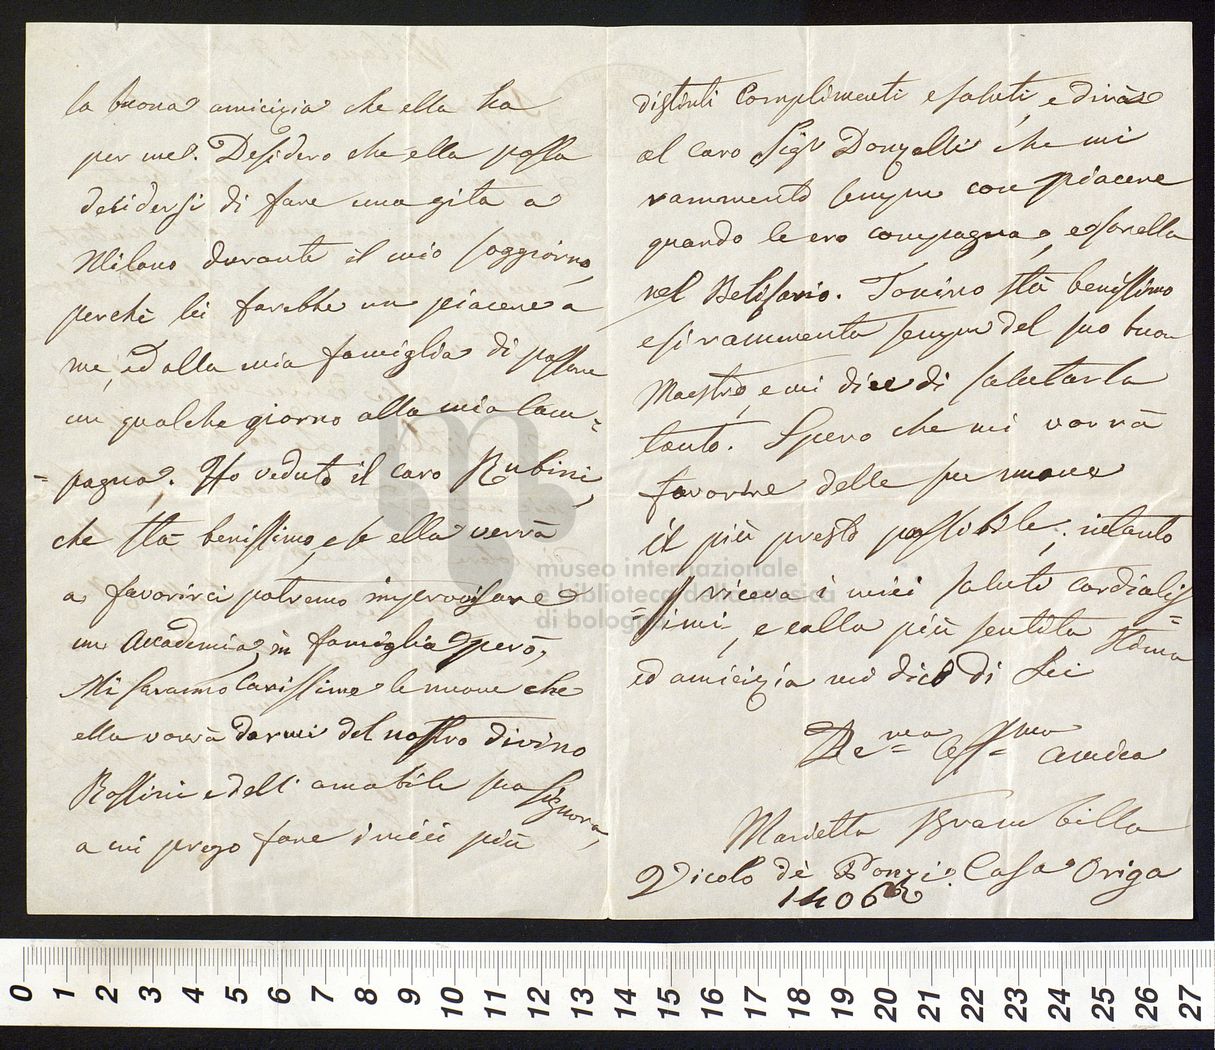 la buona amicizia che ella ha
per me. Desidero che ella possa
decidersi di fare una gita a
Milano durante il mio soggiorno,
perchè lei farebbe un piacere a
me, ed alla mia famiglia di passare
un qualche giorno alla mia Cam=
=pagna. Ho veduto il caro Rubini,
che stà benissimo, e se ella verrà
a favorirci potremo improvisare
un Accademia, in famiglia però,
Mi saranno Carissime le nuove che
ella vorrà darmi del nostro divino
Rossini e dell'amabile sua Signora,
a cui prego fare i miei più
distinti Complimenti e saluti, e dirà
al caro Sigr Donzelli che mi
rammento sempre con piacere
quando le ero compagna, e sorella
nel Belisario. Tonino stà benissimo
e si rammenta sempre del suo buon
Maestro, e mi dice di salutarla
tanto. Spero che mi vorrà
favorire delle sue nuove
il più presto possibile; intanto
riceva i miei saluti cordialis=
=simi, e colla più sentita stima
ed amicizia mi dico di Lei
Dema Affma amica
Marietta Brambilla
Vicolo dè Ponzio Casa Origa
1406
museo internazionale
e biblioteca della musica
di bologna
0 1 2 3 4 5 6 7 8 9 10 11 12 13 14 15 16 17 18 19 20 21 22 23 24 25 26 27